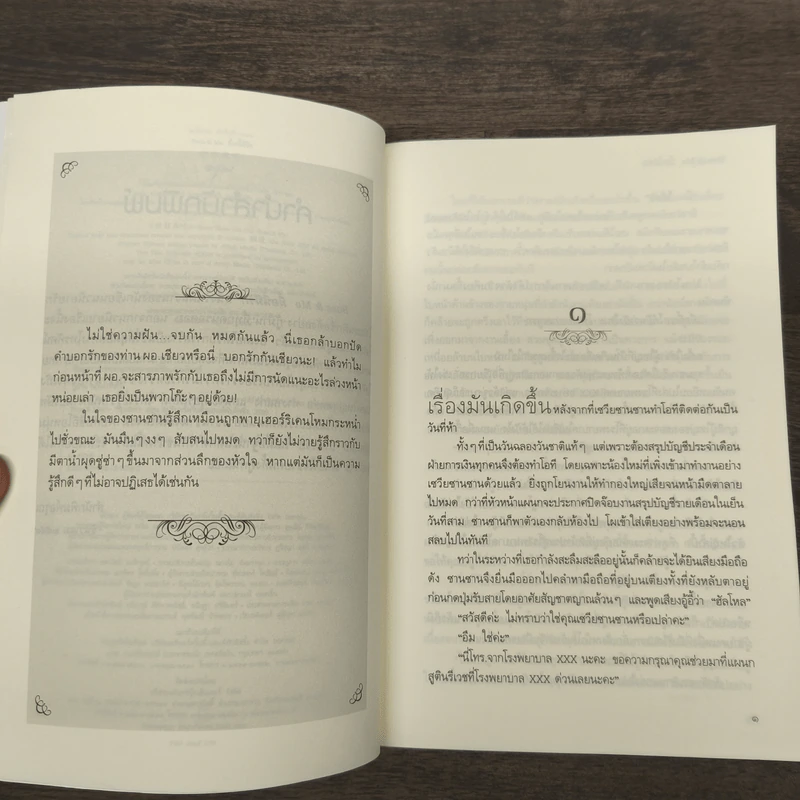 ไม่ใช่ความฝัน...จบกัน หมดกันแล้ว นี่เธอกล้าบอกปัด
คำบอกรักของท่าน ผอ.เชียวหรือนี่ บอกรักกันเชียวนะ! แล้วทำไม
ก่อนหน้าที่ ผอ.จะสารภาพรักกับเธอถึงไม่มีการนัดแนะอะไรล่วงหน้า
หน่อยเล่า เธอยิ่งเป็นพวกโก๊ะๆอยู่ด้วย!
ในใจของซานซานรู้สึกเหมือนถูกพายุเฮอร์ริเคนโหมกระหน่ำ
ไปชั่วขณะ มันมึนๆงงๆ สับสนไปหมด ทว่าก็ยังไม่วายรู้สึกราวกับ
มีตาน้ำผุดซู่ซ่าๆขึ้นมาจากส่วนลึกของหัวใจ หากแต่มันก็เป็นความ
รู้สึกดีๆที่ไม่อาจปฏิเสธได้เช่นกัน
๑
เรื่องมันเกิดขึ้น หลังจากที่เซวียซานซานทำโอทีติดต่อกันเป็น
วันที่ห้า
ทั้งๆที่เป็นวันฉลองวันชาติแท้ๆ แต่เพราะต้องสรุปบัญชีประจำเดือน
ฝ่ายการเงินทุกคนจึงต้องทำโอที โดยเฉพาะน้องใหม่ที่เพิ่งเข้ามาทำงานอย่าง
เซวียซานซานด้วยแล้ว ยิ่งถูกโยนงานให้ทำกองใหญ่เสียจนหน้ามืดตาลาย
ไปหมด กว่าที่หัวหน้าแผนกจะประกาศปิดจ๊อบงานสรุปบัญชีรายเดือนในเย็น
วันที่สาม ซานซานก็พาตัวเองกลับห้องไป โผเข้าใส่เตียงอย่างพร้อมจะนอน
สลบไปในทันที
ทว่าในระหว่างที่เธอกำลังสะลึมสะลืออยู่นั้นก็คล้ายจะได้ยินเสียงมือถือ
ดัง ซานซานจึงยื่นมือออกไปคลำหามือถือที่อยู่บนเตียงทั้งที่ยังหลับตาอยู่
ก่อนกดปุ่มรับสายโดยอาศัยสัญชาตญาณล้วนๆ และพูดเสียงอู้อี้ว่า “ฮัลโหล”
“สวัสดีค่ะ ไม่ทราบว่าใช่คุณเซวียซานซานหรือเปล่าคะ”
“อืม ใช่ค่ะ”
“นี่โทร.จากโรงพยาบาล XXX นะคะ ขอความกรุณาคุณช่วยมาที่แผนก
สูตินรีเวชที่โรงพยาบาล XXX ด่วนเลยนะคะ”
๑